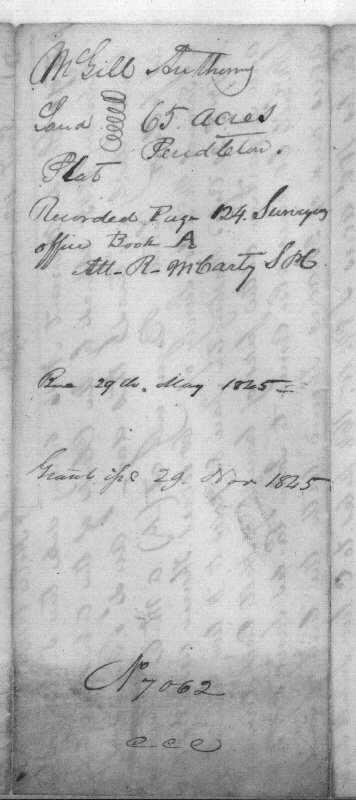 McGill Anthony
Land 65 acres
Pendleton.
Plat
Recorded Page 124 Surveyors
office Book A
Att- R- McCarty
Rec 29th. May 1845
Grant iss 29. Nov 1845
No 7062